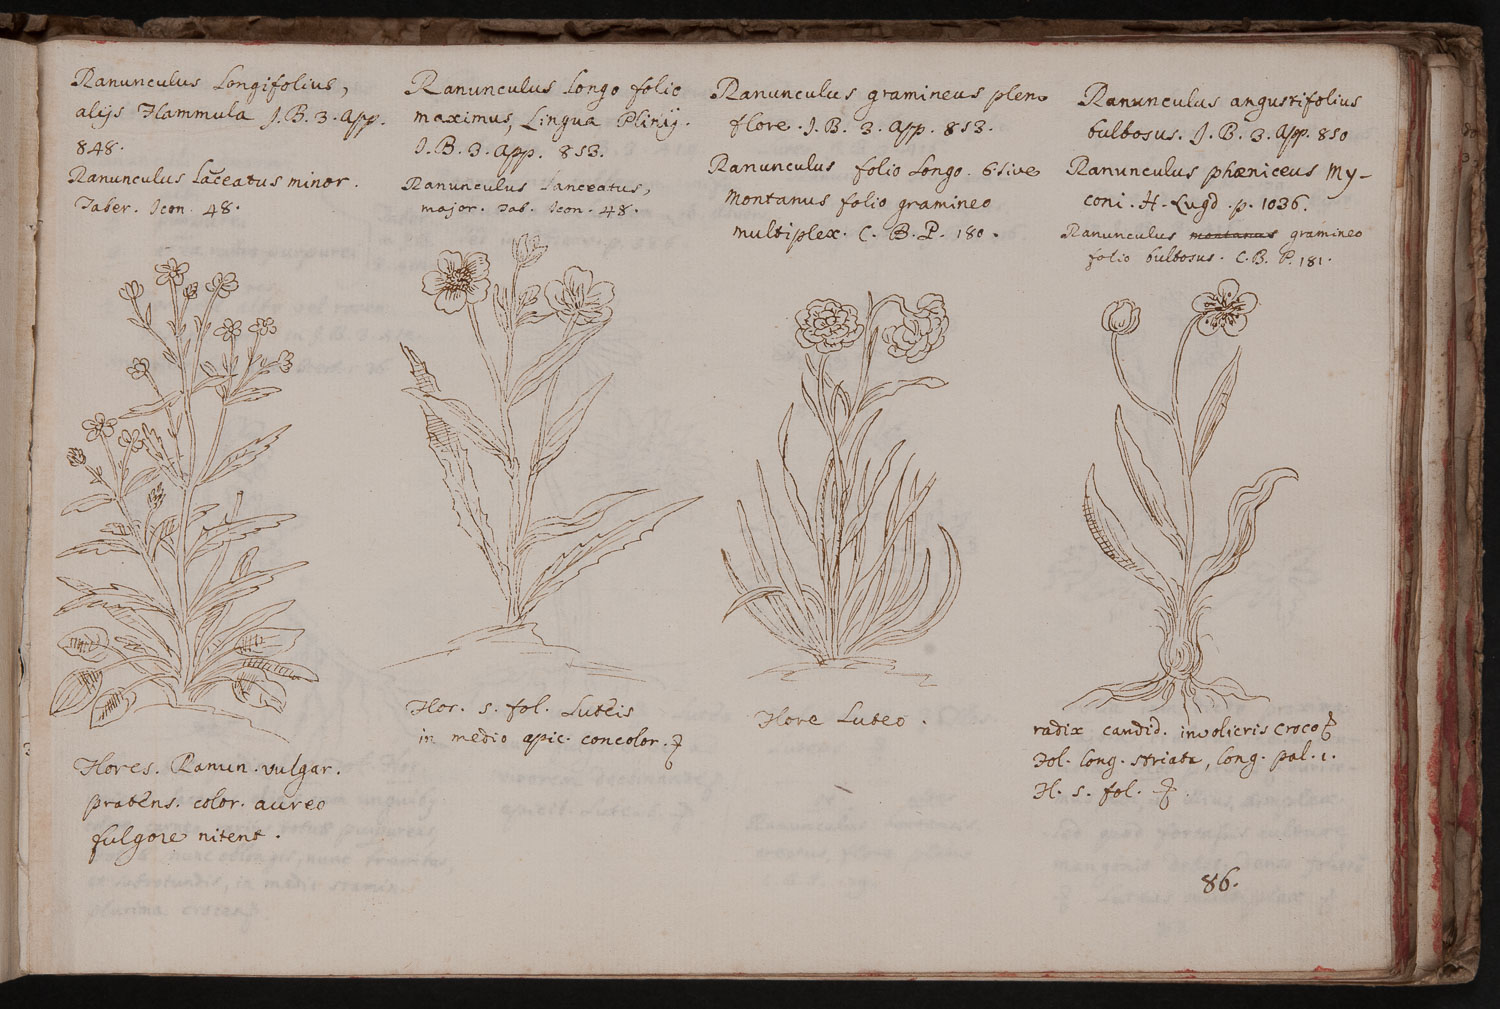 Ranunculus Longifolius,
alijs Flammula J. B. 3. App.
848.
Ranunculus Laceatus minor.
Taber. Icon. 48.
Flores. Ranun. vulgar.
pratens. color. aureo
fulgore nitent.
Ranunculus Longo folio
maximus, Lingua Plinij.
J. B. 3. App. 853.
Ranunculus Lanceatus,
major. Tab. Icon. 48.
Flor. s. fol. Luteis
in medio apic. concolor.
Ranunculus gramineus pleno
flore. J. B. 3. App. 853.
Ranunculus folio Longo. 6 sive
Montanus folio gramineo
multiplex. C. B. P. 180.
Flore Luteo.
Ranunculus angustifolius
bulbosus. J. B. 3. App. 850
Ranunculus phœniceus My-
coni. H. Lugd. p. 1036.
Ranunculus montanus gramineo
folio bulbosus. C. B. P. 181.
radix candid. involicris croco
Fol. long. striata, long. pal. 1.
Fl. s. fol.
86.